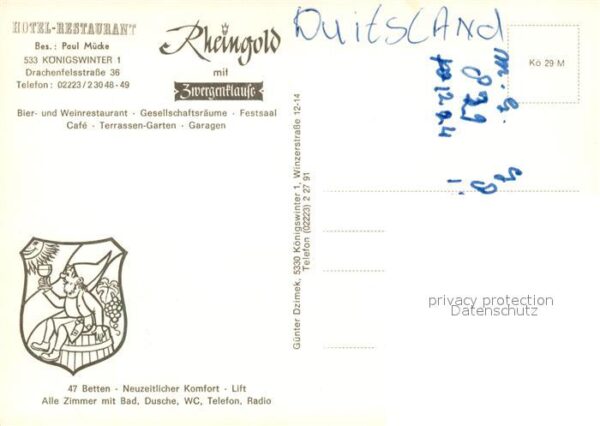 HOTEL-RESTAURANT
Bes.: Paul Mücke
533 KÖNIGSWINTER 1
Drachenfelsstraße 36
Telefon: 02223/2 30 48 - 49
Rheingold
mit
Zwergenklause
Bier- und Weinrestaurant · Gesellschaftsräume · Festsaal
Café · Terrassen-Garten · Garagen
DUitSLAnD
Kö 29 M
Günter Dzimek, 5330 Königswinter 1, Winzerstraße 12-14
Telefon (02223) 2 27 91
privacy protection
Datenschutz
47 Betten · Neuzeitlicher Komfort · Lift
Alle Zimmer mit Bad, Dusche, WC, Telefon, Radio